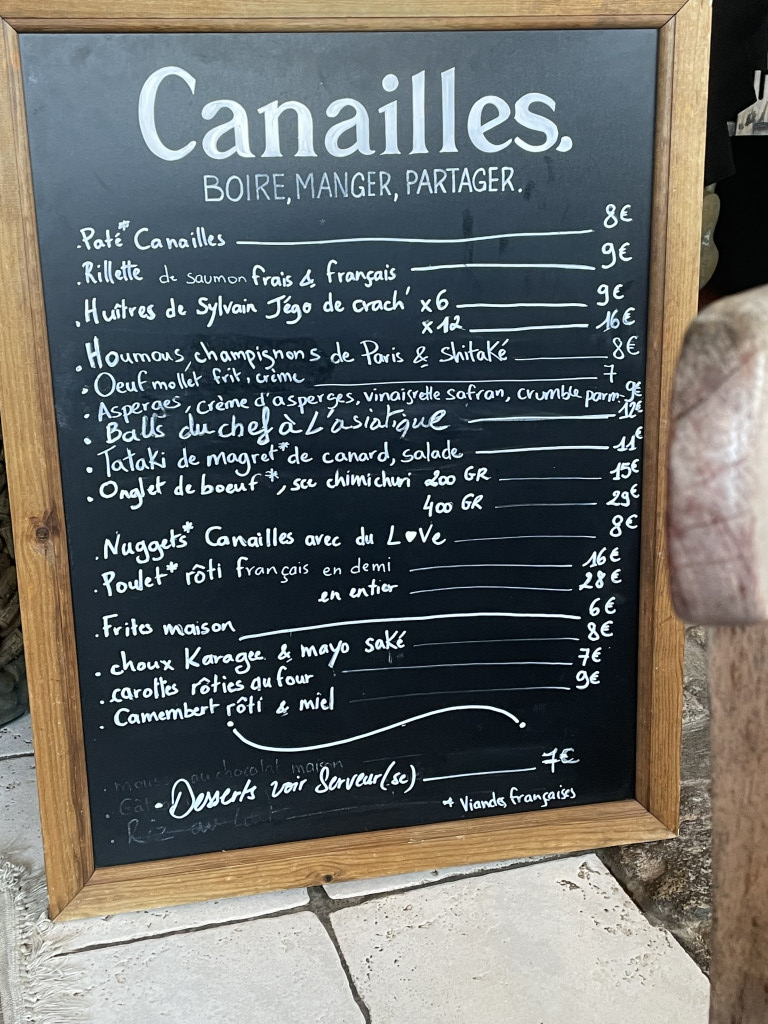 Canailles.
BOIRE, MANGER, PARTAGER.
. Paté* Canailles 8€
. Rillette de saumon frais & français 9€
. Huîtres de Sylvain Jégo de crach' x6 9€
x12 16€
. Houmous, champignons de Paris & shitaké 8€
. Oeuf mollet frit, crème 7
. Asperges, crème d'asperges, vinaigrette safran, crumble parm. 9€
. Balls du chef à L'asiatique 12€
. Tataki de magret* de canard, salade 11€
. Onglet de boeuf*, sce chimichuri 200 GR 15€
400 GR 29€
. Nuggets* Canailles avec du L♥Ve 8€
. Poulet* rôti français en demi 16€
en entier 28€
. Frites maison 6€
. choux Karagee & mayo saké 8€
. carottes rôties au four 7€
. Camembert rôti & miel 9€
. mousse au chocolat maison
. Desserts voir Serveur(se) 7€
. Riz au lait
* Viandes françaises